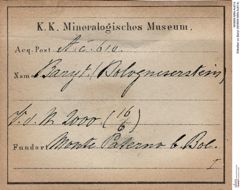 K. K. Mineralogisches Museum.
Acq. Post A. c. 610.
Name Baryt (Bologneserstein)
V. d. N. 2000 (16/6)
Fundort Monte Paterno b. Bol.
I